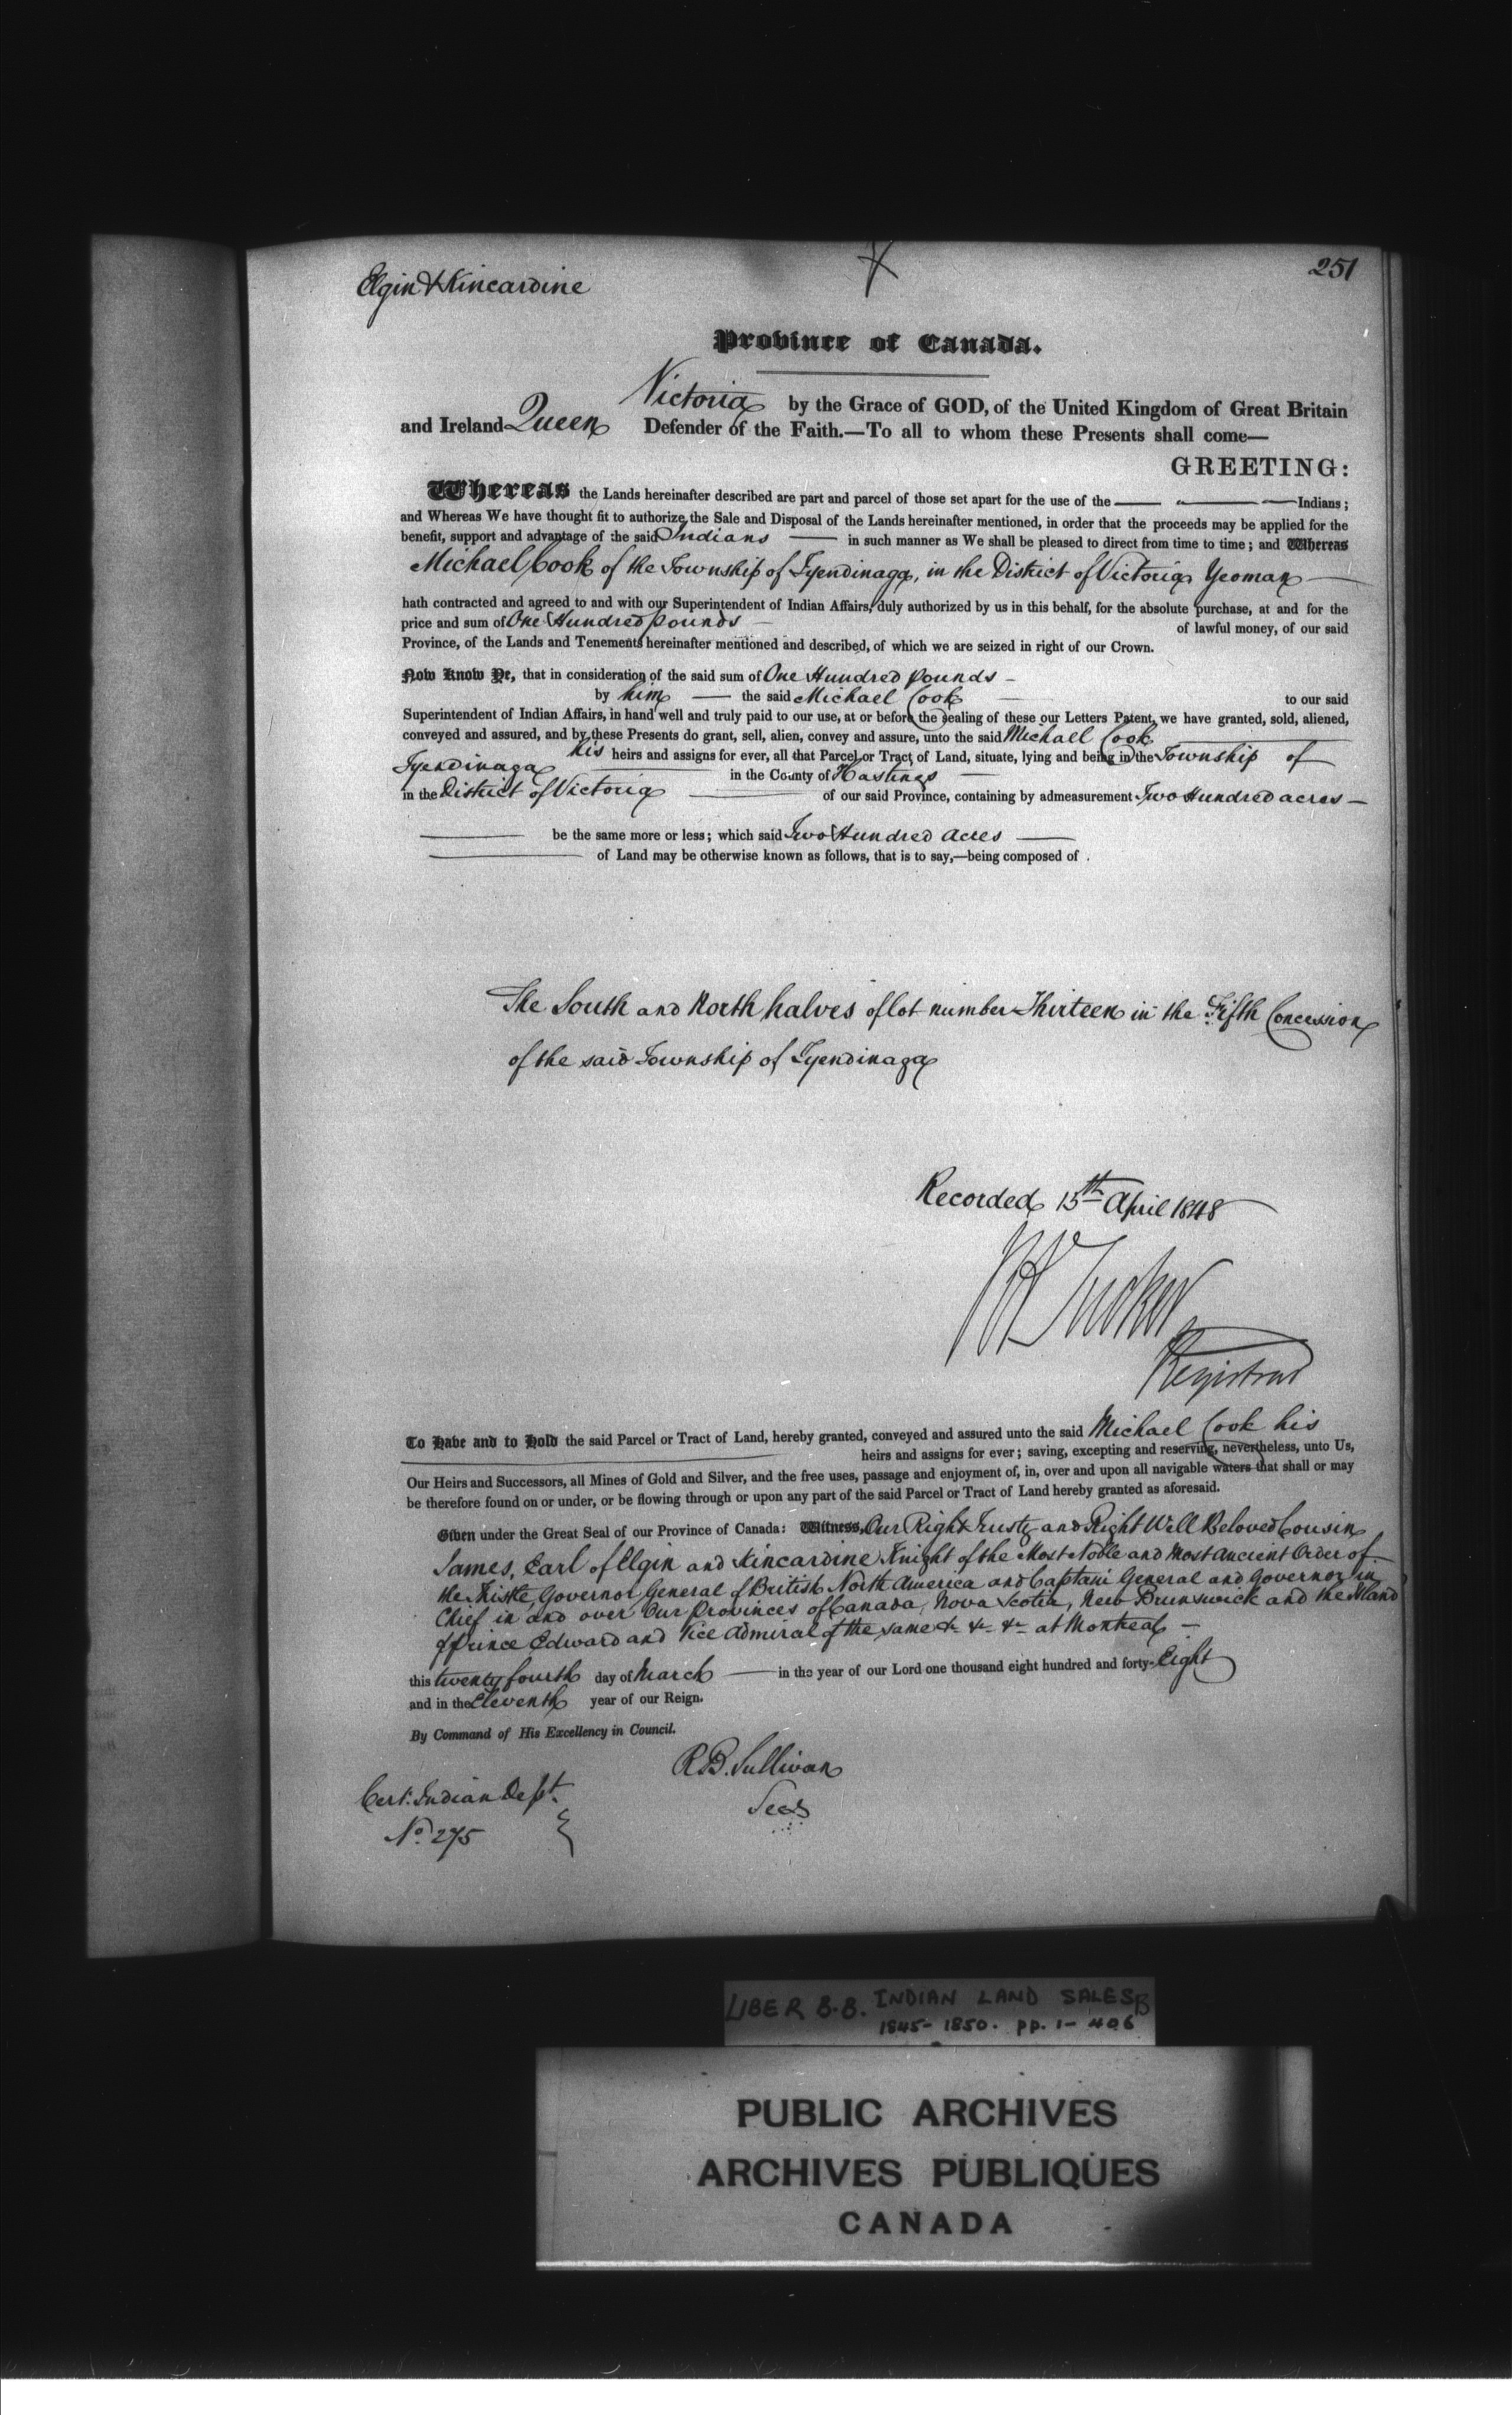 Elgin & Kincardine
251
Province of Canada.
Victoria by the Grace of GOD, of the United Kingdom of Great Britain
and Ireland Queen Defender of the Faith.—To all to whom these Presents shall come—
GREETING:
Whereas the Lands hereinafter described are part and parcel of those set apart for the use of the — Indians;
and Whereas We have thought fit to authorize the Sale and Disposal of the Lands hereinafter mentioned, in order that the proceeds may be applied for the
benefit, support and advantage of the said Indians — in such manner as We shall be pleased to direct from time to time; and Whereas
Michael Cook of the Township of Tyendinaga, in the District of Victoria Yeoman —
hath contracted and agreed to and with our Superintendent of Indian Affairs, duly authorized by us in this behalf, for the absolute purchase, at and for the
price and sum of One Hundred pounds — of lawful money, of our said
Province, of the Lands and Tenements hereinafter mentioned and described, of which we are seized in right of our Crown.
Now Know Ye, that in consideration of the said sum of One Hundred pounds —
by him — the said Michael Cook — to our said
Superintendent of Indian Affairs, in hand well and truly paid to our use, at or before the sealing of these our Letters Patent, we have granted, sold, aliened,
conveyed and assured, and by these Presents do grant, sell, alien, convey and assure, unto the said Michael Cook
his heirs and assigns for ever, all that Parcel or Tract of Land, situate, lying and being in the Township of
Tyendinaga — in the County of Hastings —
in the District of Victoria — of our said Province, containing by admeasurement Two Hundred acres —
— be the same more or less; which said Two Hundred Acres —
— of Land may be otherwise known as follows, that is to say,—being composed of
The South and North halves of lot number Thirteen in the Fifth Concession
of the said Township of Tyendinaga
Recorded 15th April 1848
Tucker
Registrar
To Have and to Hold the said Parcel or Tract of Land, hereby granted, conveyed and assured unto the said Michael Cook his
heirs and assigns for ever; saving, excepting and reserving, nevertheless, unto Us,
Our Heirs and Successors, all Mines of Gold and Silver, and the free uses, passage and enjoyment of, in, over and upon all navigable waters that shall or may
be therefore found on or under, or be flowing through or upon any part of the said Parcel or Tract of Land hereby granted as aforesaid.
Given under the Great Seal of our Province of Canada: Witness, Our Right Trusty and Right Well Beloved Cousin
James, Earl of Elgin and Kincardine Knight of the Most Noble and Most Ancient Order of
the Thistle, Governor General of British North America and Captain General and Governor in
Chief in and over Our Provinces of Canada, Nova Scotia, New Brunswick and the Island
of Prince Edward and Vice Admiral of the same &c &c &c at Montreal —
this twenty fourth day of March — in the year of our Lord one thousand eight hundred and forty-Eight
and in the Eleventh year of our Reign.
By Command of His Excellency in Council.
R.B. Sullivan
Secy
Cert. Indian Dept.
No. 275
LIBER B.B. INDIAN LAND SALES B
1845-1850. pp. 1-406
PUBLIC ARCHIVES
ARCHIVES PUBLIQUES
CANADA